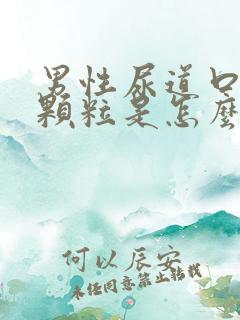 男性尿道口
顆粒是怎麼
何以辰安
未经同意禁止转载